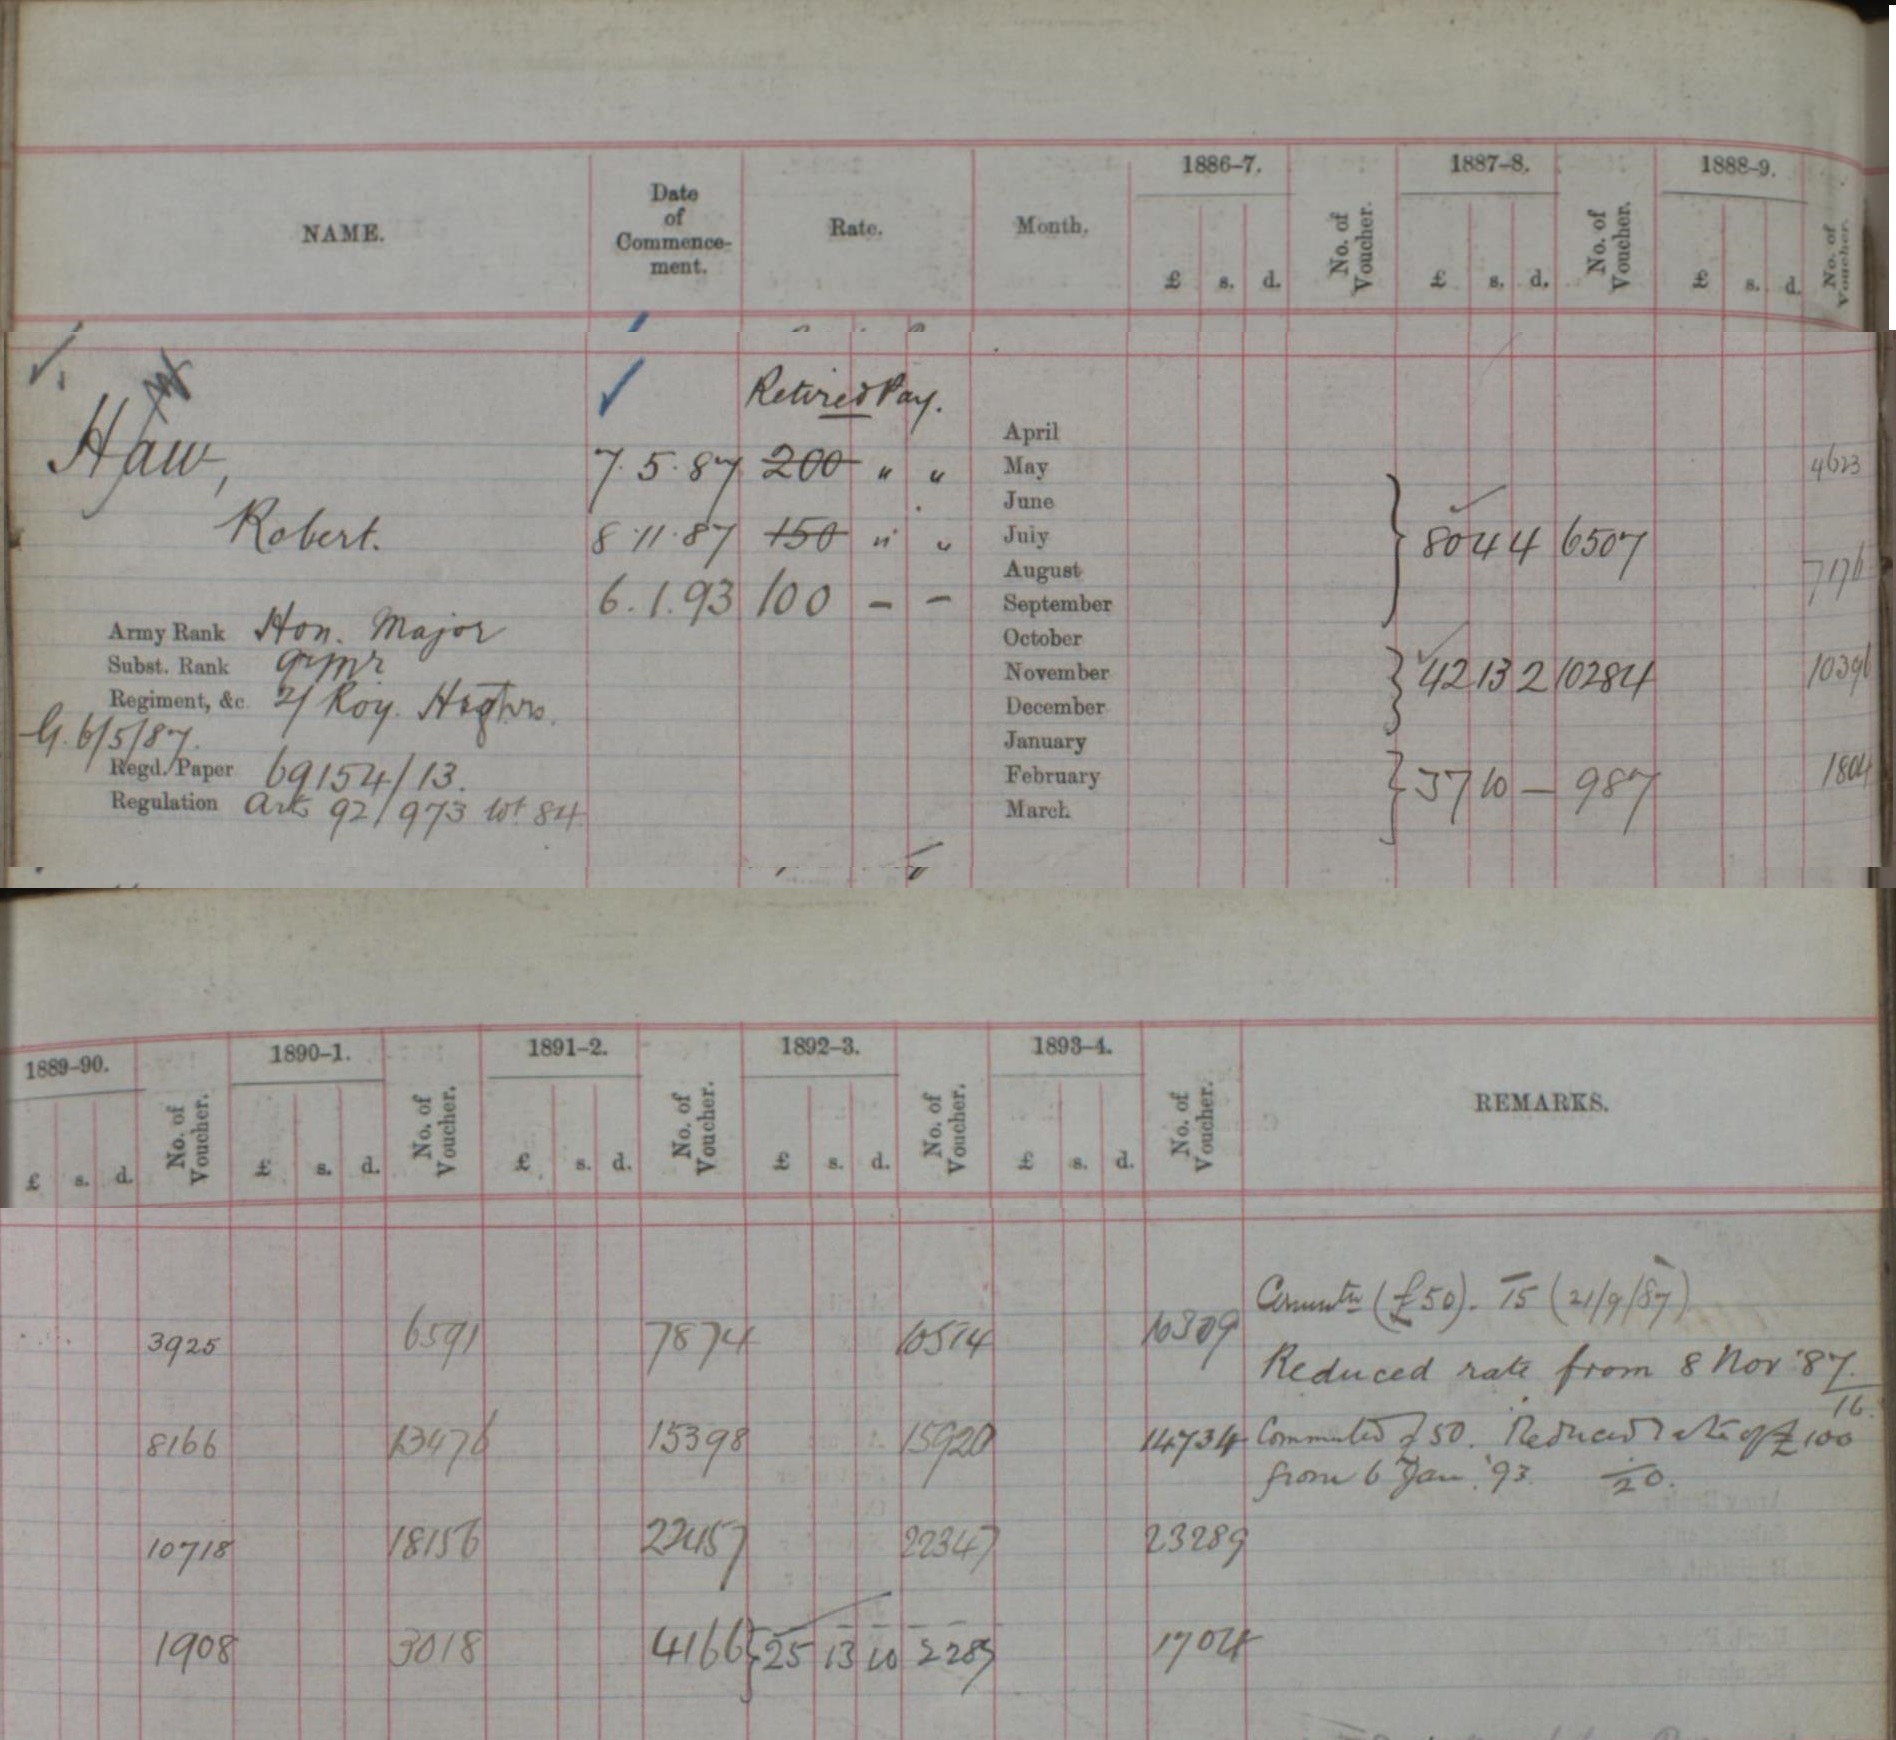 1886-7. 1887-8. 1888-9.
NAME. Date of Commence- ment. Rate. Month. £ s. d. No. of Voucher. £ s. d. No. of Voucher. £ s. d. No. of Voucher.
Retired Pay.
Haw,
April
7.5.87 200 " " May 4623
June
Robert.
8.11.87 150 " " July 80 4 4 6507
August 7176
6.1.93 100 - - September
Army Rank Hon. Major October
Subst. Rank Qrmr November 42 13 2 10284 10396
Regiment, &c 2/ Roy. Highrs. December
G. 6/5/87. January
Regd. Paper 69154/13. February 37 10 — 987 1804
Regulation Arts 92/973 Wt 84 March
1889-90. 1890-1. 1891-2. 1892-3. 1893-4.
£ s. d. No. of Voucher. £ s. d. No. of Voucher. £ s. d. No. of Voucher. £ s. d. No. of Voucher. £ s. d. No. of Voucher. REMARKS.
Commutn (£50). 15 (21/9/87)
3925 6591 7874 10514 10309
Reduced rate from 8 Nov '87.
16.
8166 13476 15398 15920 14734 Commuted £50. Reduced rate of £100
from 6 Jan. '93. 20.
10718 18156 22457 22347 23289
1908 3018 4166 25 13 10 2289 1704